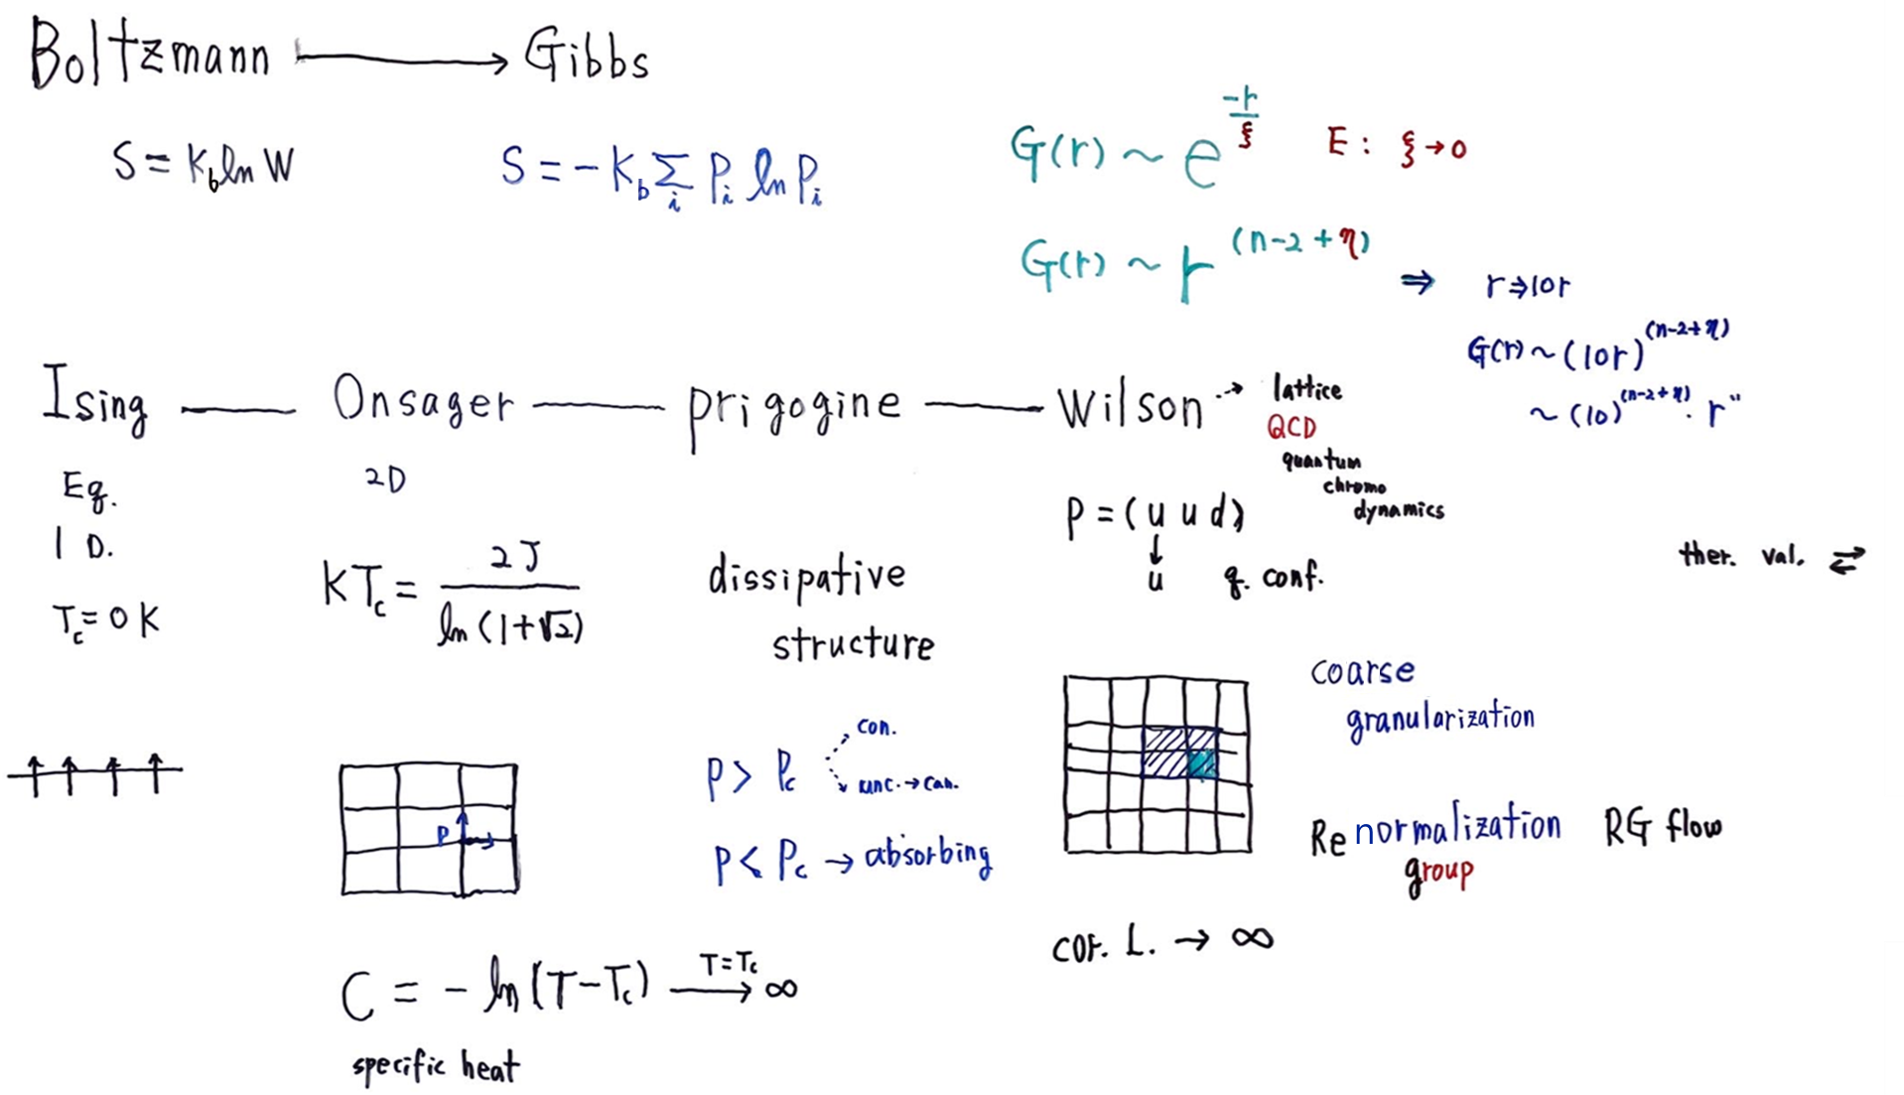 Boltzmann → Gibbs
S = K_b ln W
S = -K_b Σ_i P_i ln P_i
G(r) ~ e^(-r/ξ)    E : ξ→0
G(r) ~ r^(n-2+η) ⇒ r⇒10r
G(r) ~ (10r)^(n-2+η)
~ (10)^(n-2+η) · r"
Ising — Onsager — prigogine — Wilson ⇢ lattice
QCD
quantum
chromo
dynamics
Eq.
1 D.
T_c = 0 K
2D
KT_c = 2J / ln(1+√2)
dissipative
structure
P = (u u d)
↓
u    q. conf.
ther. val. ⇄
P > P_c
con.
unc. → can.
P < P_c → absorbing
P
coarse
granularization
Renormalization    RG flow
group
cor. L. → ∞
C = - ln(T-T_c) →^(T=T_c) ∞
specific heat